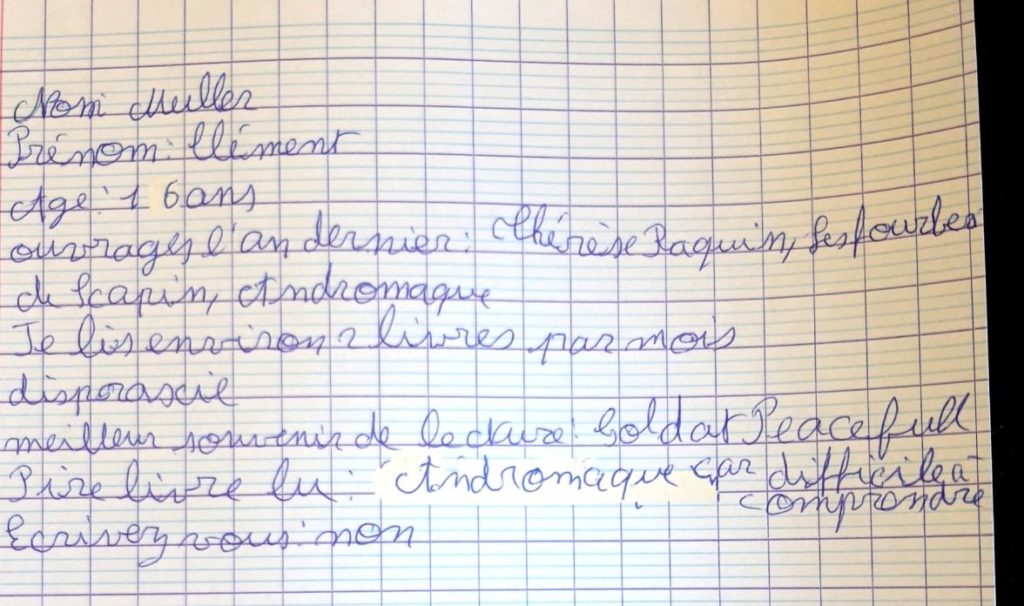 Nom Muller
Prénom: Clément
Age: 16 ans
ouvrages l'an dernier: Thérèse Raquin, les fourbes
de Scapin, Andromaque
Je lis environ 2 livres par mois
disporascie
meilleur souvenir de lecture: Soldat Peacefull
Pire livre lu: Andromaque car difficile à
comprondre
Ecrivez vous: non